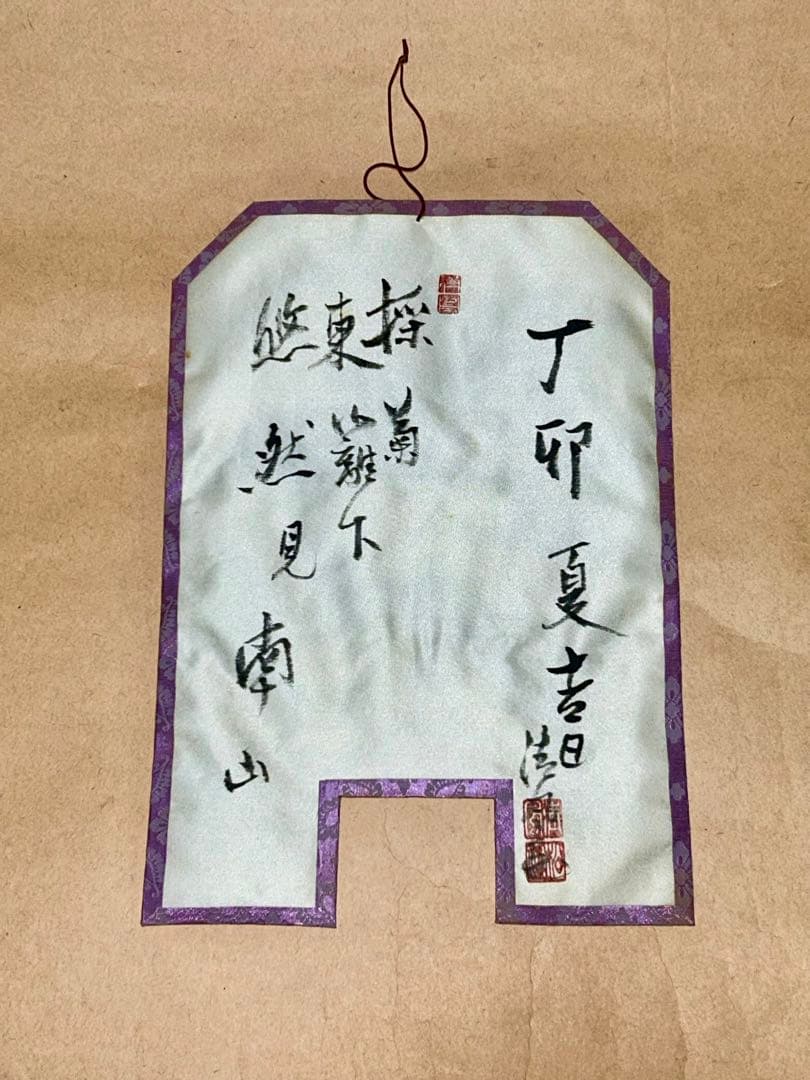 丁卯夏吉日
採菊
東籬下
悠然見南山